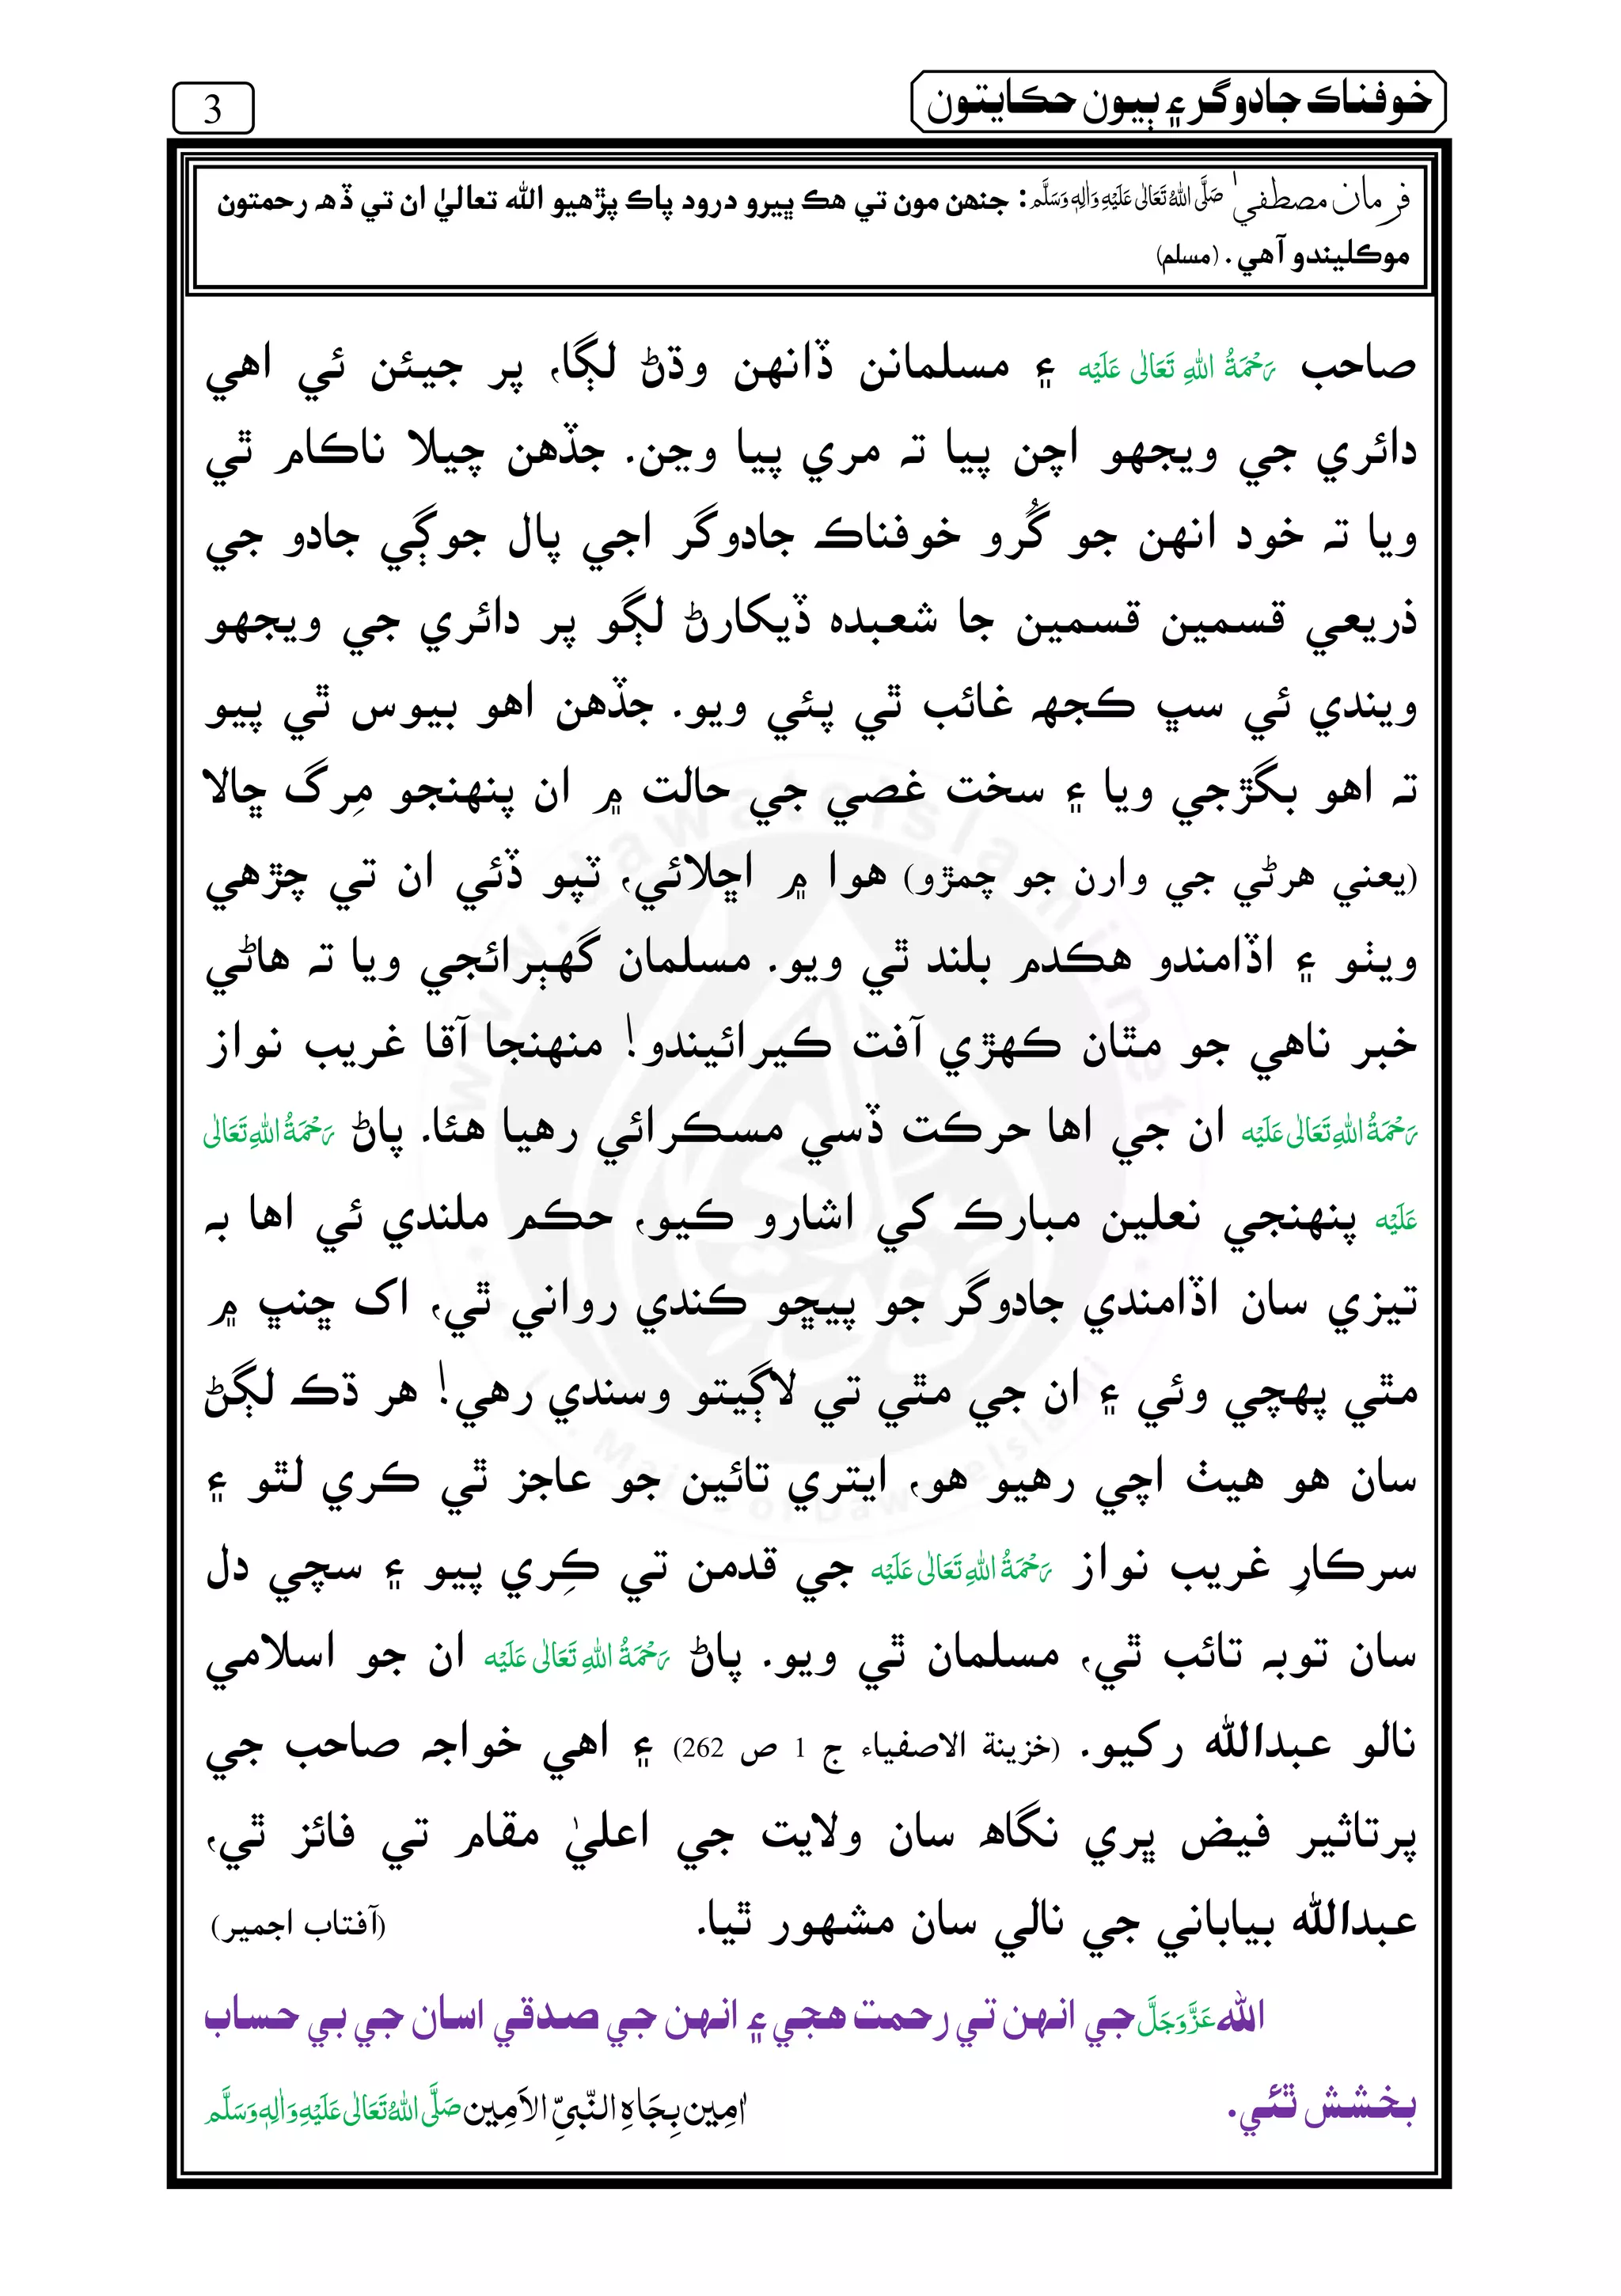 خوفناڪ جادوگر ۽ ٻيون حڪايتون
3
فرمانِ مصطفيٰ صَلَّى اللهُ تَعَالٰى عَلَيْهِ وَاٰلِهٖ وَسَلَّم: جنهن مون تي هڪ ڀيرو درود پاڪ پڙهيو الله تعاليٰ ان تي ڏهہ رحمتون
موڪليندو آهي. (مسلم)
صاحب رَحْمَةُ اللهِ تَعَالٰى عَلَيْه ۽ مسلمانن ڏانهن وڌڻ لڳا، پر جيئن ئي اهي
دائري جي ويجھو اچن پيا تہ مري پيا وڃن. جڏهن چيلا ناڪام ٿي
ويا تہ خود انهن جو گُرو خوفناڪ جادوگر اجي پال جوڳي جادو جي
ذريعي قسمين قسمين جا شعبده ڏيکارڻ لڳو پر دائري جي ويجھو
ويندي ئي سڀ ڪجھہ غائب ٿي پئي ويو. جڏهن اهو بيوس ٿي پيو
تہ اهو بگڙجي ويا ۽ سخت غصي جي حالت ۾ ان پنهنجو مِرگ ڇالا
(يعني هرڻي جي وارن جو چمڙو) هوا ۾ اڇلائي، ٽپو ڏئي ان تي چڙهي
ويٺو ۽ اڏامندو هڪدم بلند ٿي ويو. مسلمان گهٻرائجي ويا تہ هاڻي
خبر ناهي جو مٿان ڪهڙي آفت ڪيرائيندو! منهنجا آقا غريب نواز
رَحْمَةُ اللهِ تَعَالٰى عَلَيْه ان جي اها حرڪت ڏسي مسڪرائي رهيا هئا. پاڻ رَحْمَةُ اللهِ تَعَالٰى
عَلَيْه پنهنجي نعلين مبارڪ کي اشارو ڪيو، حڪم ملندي ئي اها بہ
تيزي سان اڏامندي جادوگر جو پيڇو ڪندي رواني ٿي، اک ڇنڀ ۾
مٿي پهچي وئي ۽ ان جي مٿي تي لاڳيتو وسندي رهي! هر ڌڪ لڳڻ
سان هو هيٺ اچي رهيو هو، ايتري تائين جو عاجز ٿي ڪري لٿو ۽
سرڪارِ غريب نواز رَحْمَةُ اللهِ تَعَالٰى عَلَيْه جي قدمن تي ڪِري پيو ۽ سچي دل
سان توبہ تائب ٿي، مسلمان ٿي ويو. پاڻ رَحْمَةُ اللهِ تَعَالٰى عَلَيْه ان جو اسلامي
نالو عبدالله رکيو. (خزينة الاصفياء ج 1 ص 262) ۽ اهي خواجہ صاحب جي
پرتاثير فيض ڀري نگاهہ سان ولايت جي اعليٰ مقام تي فائز ٿي،
عبدالله بياباني جي نالي سان مشهور ٿيا. (آفتاب اجمير)
الله عَزَّوَجَلَّ جي انهن تي رحمت هجي ۽ انهن جي صدقي اسان جي بي حساب
بخشش ٿئي. اٰمِين بِجَاهِ النَّبِيِّ الْاَمِين صَلَّى اللهُ تَعَالٰى عَلَيْهِ وَاٰلِهٖ وَسَلَّم
www.dawateislami.net
I.T. Majlis of DawateIslami